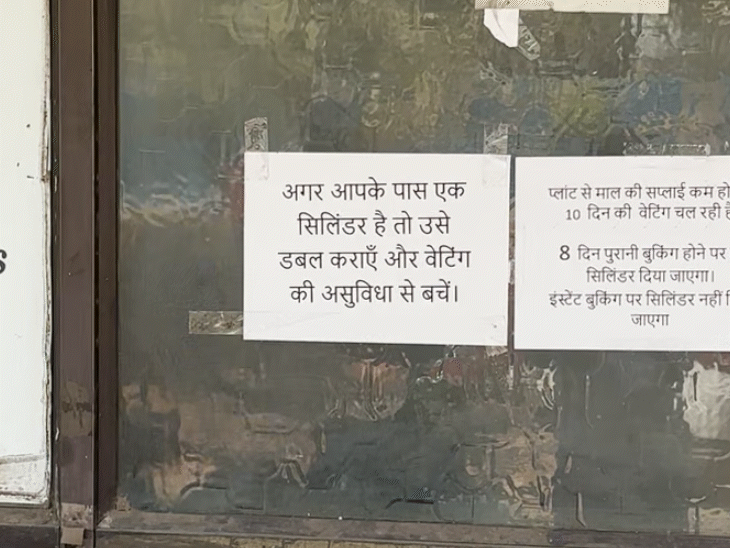 अगर आपके पास एक
सिलिंडर है तो उसे
डबल कराएँ और वेटिंग
की असुविधा से बचें।
प्लांट से माल की सप्लाई कम
10 दिन की वेटिंग चल रही
8 दिन पुरानी बुकिंग होने पर
सिलिंडर दिया जाएगा।
इंस्टेंट बुकिंग पर सिलिंडर नहीं
जाएगा